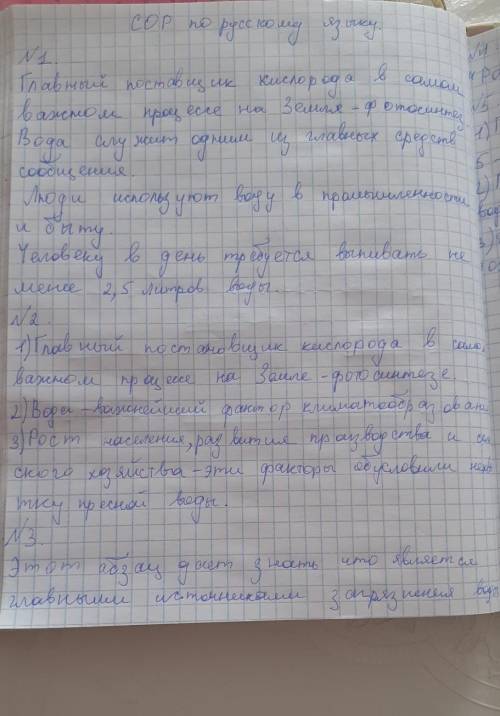 СОР по русскому языку.
№1.
Главный поставщик кислорода в самом
важном процессе на Земле - фотосинтез
Вода служит одним из главных средств
сообщения.
Люди используют воду в промышленности
и быту.
Человеку в день требуется выпивать не
менее 2,5 литров воды.
№2.
1) Главный постановщик кислорода в само
важном процессе на Земле - фотосинтезе.
2) Вода - важнейший фактор климатообразован
3) Рост населения, развития производства и
ского хозяйства - эти факторы обусловили
тку пресной воды.
№3.
Этот абзац дает знать что является
главными источниками загрязнения
№4
№5
1)
2)
3)